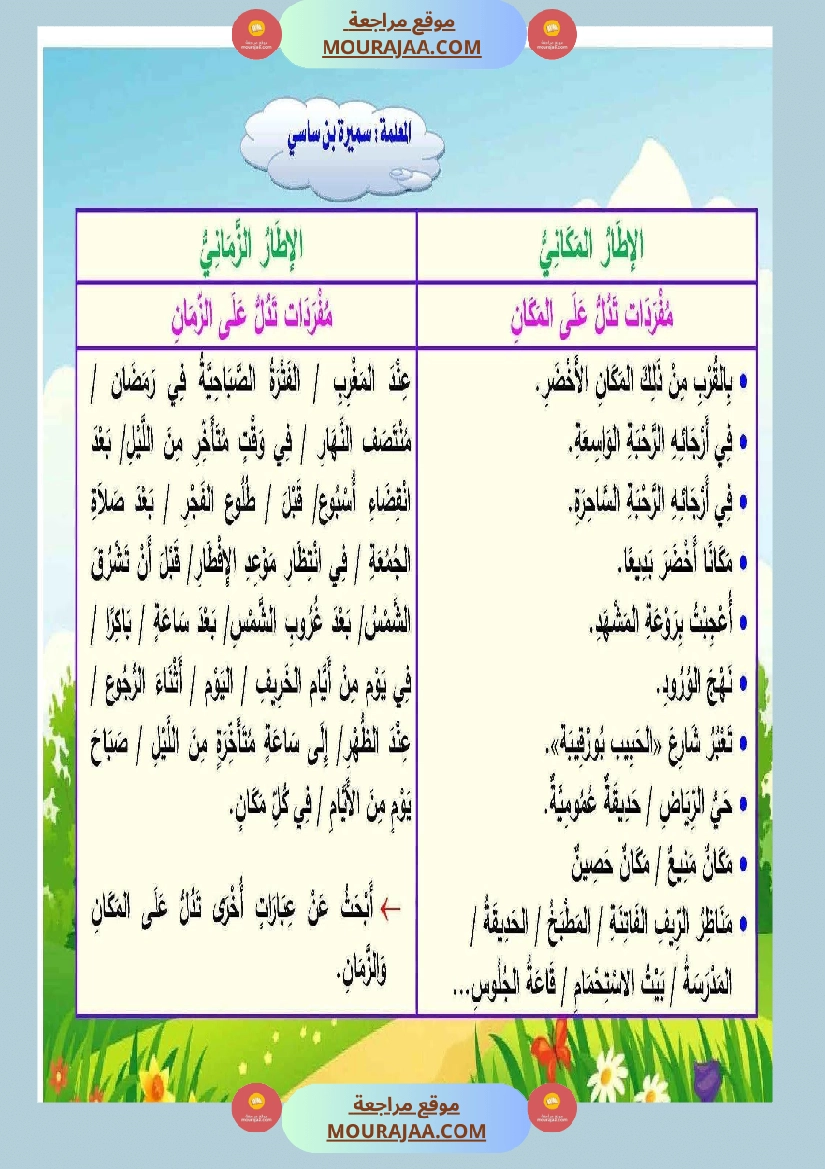 موقع مراجعة
MOURAJAA.COM
المعلمة : سميرة بن ساسي
الإِطَارُ المَكَانِيُّ
الإِطَارُ الزَّمَانِيُّ
مُفْرَدَات تَدُلُّ عَلَى المَكَانِ
مُفْرَدَات تَدُلُّ عَلَى الزَّمَانِ
• بِالقُرْبِ مِنْ ذَلِكَ المَكَانِ الأَخْضَرِ.
• فِي أَرْجَائِهِ الرَّحْبَةِ الوَاسِعَةِ.
• فِي أَرْجَائِهِ الرَّحْبَةِ السَّاحِرَةِ.
• مَكَانًا أَخْضَرَ بَدِيعًا.
• أُعْجِبْتُ بِرَوْعَةِ المَشْهَدِ.
• نَهْجَ الوُرُودِ.
• تَعْبُرُ شَارِعَ «الحَبِيب بُورْقِيبَة».
• حَيُّ الرِّيَاضِ / حَدِيقَةٌ عُمُومِيَّةٌ.
• مَكَانٌ مَنِيعٌ / مَكَانٌ حَصِينٌ
• مَنَاظِرُ الرِّيفِ الفَاتِنَةِ / المَطْبَخُ / الحَدِيقَةُ /
المَدْرَسَةُ / بَيْتُ الاسْتِحْمَامِ / قَاعَةُ الجُلُوسِ...
عِنْدَ المَغْرِبِ / الفَتْرَةُ الصَّبَاحِيَّةُ فِي رَمَضَان /
مُنْتَصَف النَّهَارِ / فِي وَقْتٍ مُتَأَخِّرِ مِنَ اللَّيْلِ/ بَعْدَ
انْقِضَاءِ أُسْبُوع/ قَبْلَ / طُلُوع الفَجْرِ / بَعْدَ صَلاَةِ
الجُمُعَةِ / فِي انْتِظَارِ مَوْعِدِ الإِفْطَارِ/ قَبْلَ أَنْ تَشْرُقَ
الشَّمْسُ/ بَعْدَ غُرُوبِ الشَّمْسِ/ بَعْدَ سَاعَةٍ / بَاكِرًا /
فِي يَوْم مِنْ أَيَّام الخَرِيفِ / اليَوْم / أَثْنَاءَ الرُّجُوع /
عِنْدَ الظُّهْرِ/ إِلَى سَاعَةٍ مُتَأَخِّرَةٍ مِنَ اللَّيْلِ / صَبَاحَ
يَوْمٍ مِنَ الأَيَّامِ / فِي كُلِّ مَكَانٍ.
← أَبْحَثُ عَنْ عِبَارَاتٍ أُخْرَى تَدُلُّ عَلَى المَكَانِ
وَالزَّمَانِ.
موقع مراجعة
MOURAJAA.COM